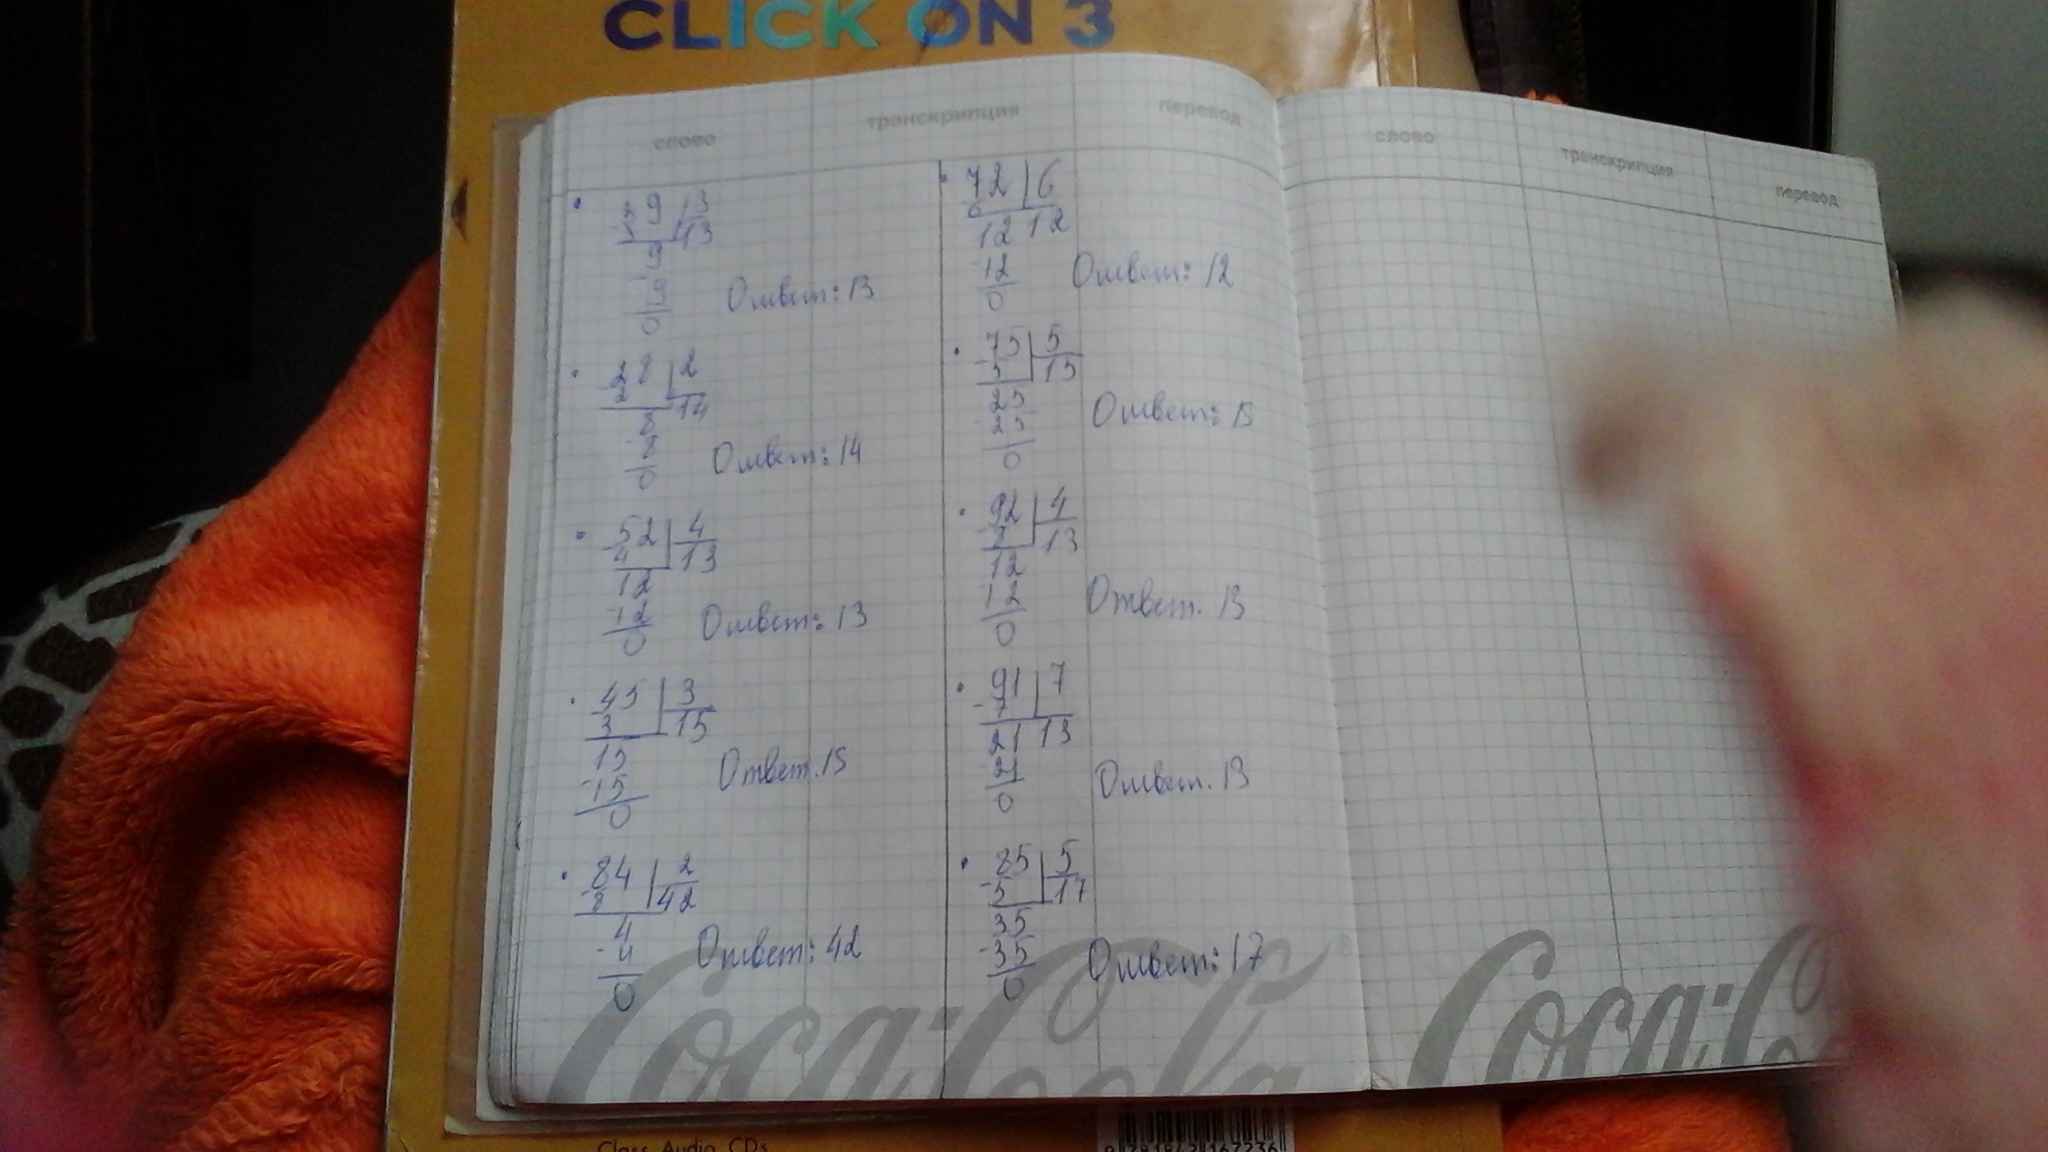 CLICK ON 3
слово транскрипция перевод
слово транскрипция перевод
39 | 3
-3 | 13
9
-9
0
Ответ: 13
28 | 2
-2 | 14
8
-8
0
Ответ: 14
52 | 4
-4 | 13
12
-12
0
Ответ: 13
45 | 3
3 | 15
15
-15
0
Ответ. 15
84 | 2
-8 | 42
4
-4
0
Ответ: 42
72 | 6
6
12 12
-12
0
Ответ: 12
75 | 5
-5 | 15
25
-25
0
Ответ: 15
92 | 4
-8 | 13
12
-12
0
Ответ. 13
91 | 7
-7
21 13
-21
0
Ответ. 13
85 | 5
-5 | 17
35
-35
0
Ответ: 17
Coca-Cola
Coca-Co
Class Audio CDs
9 781842 167236